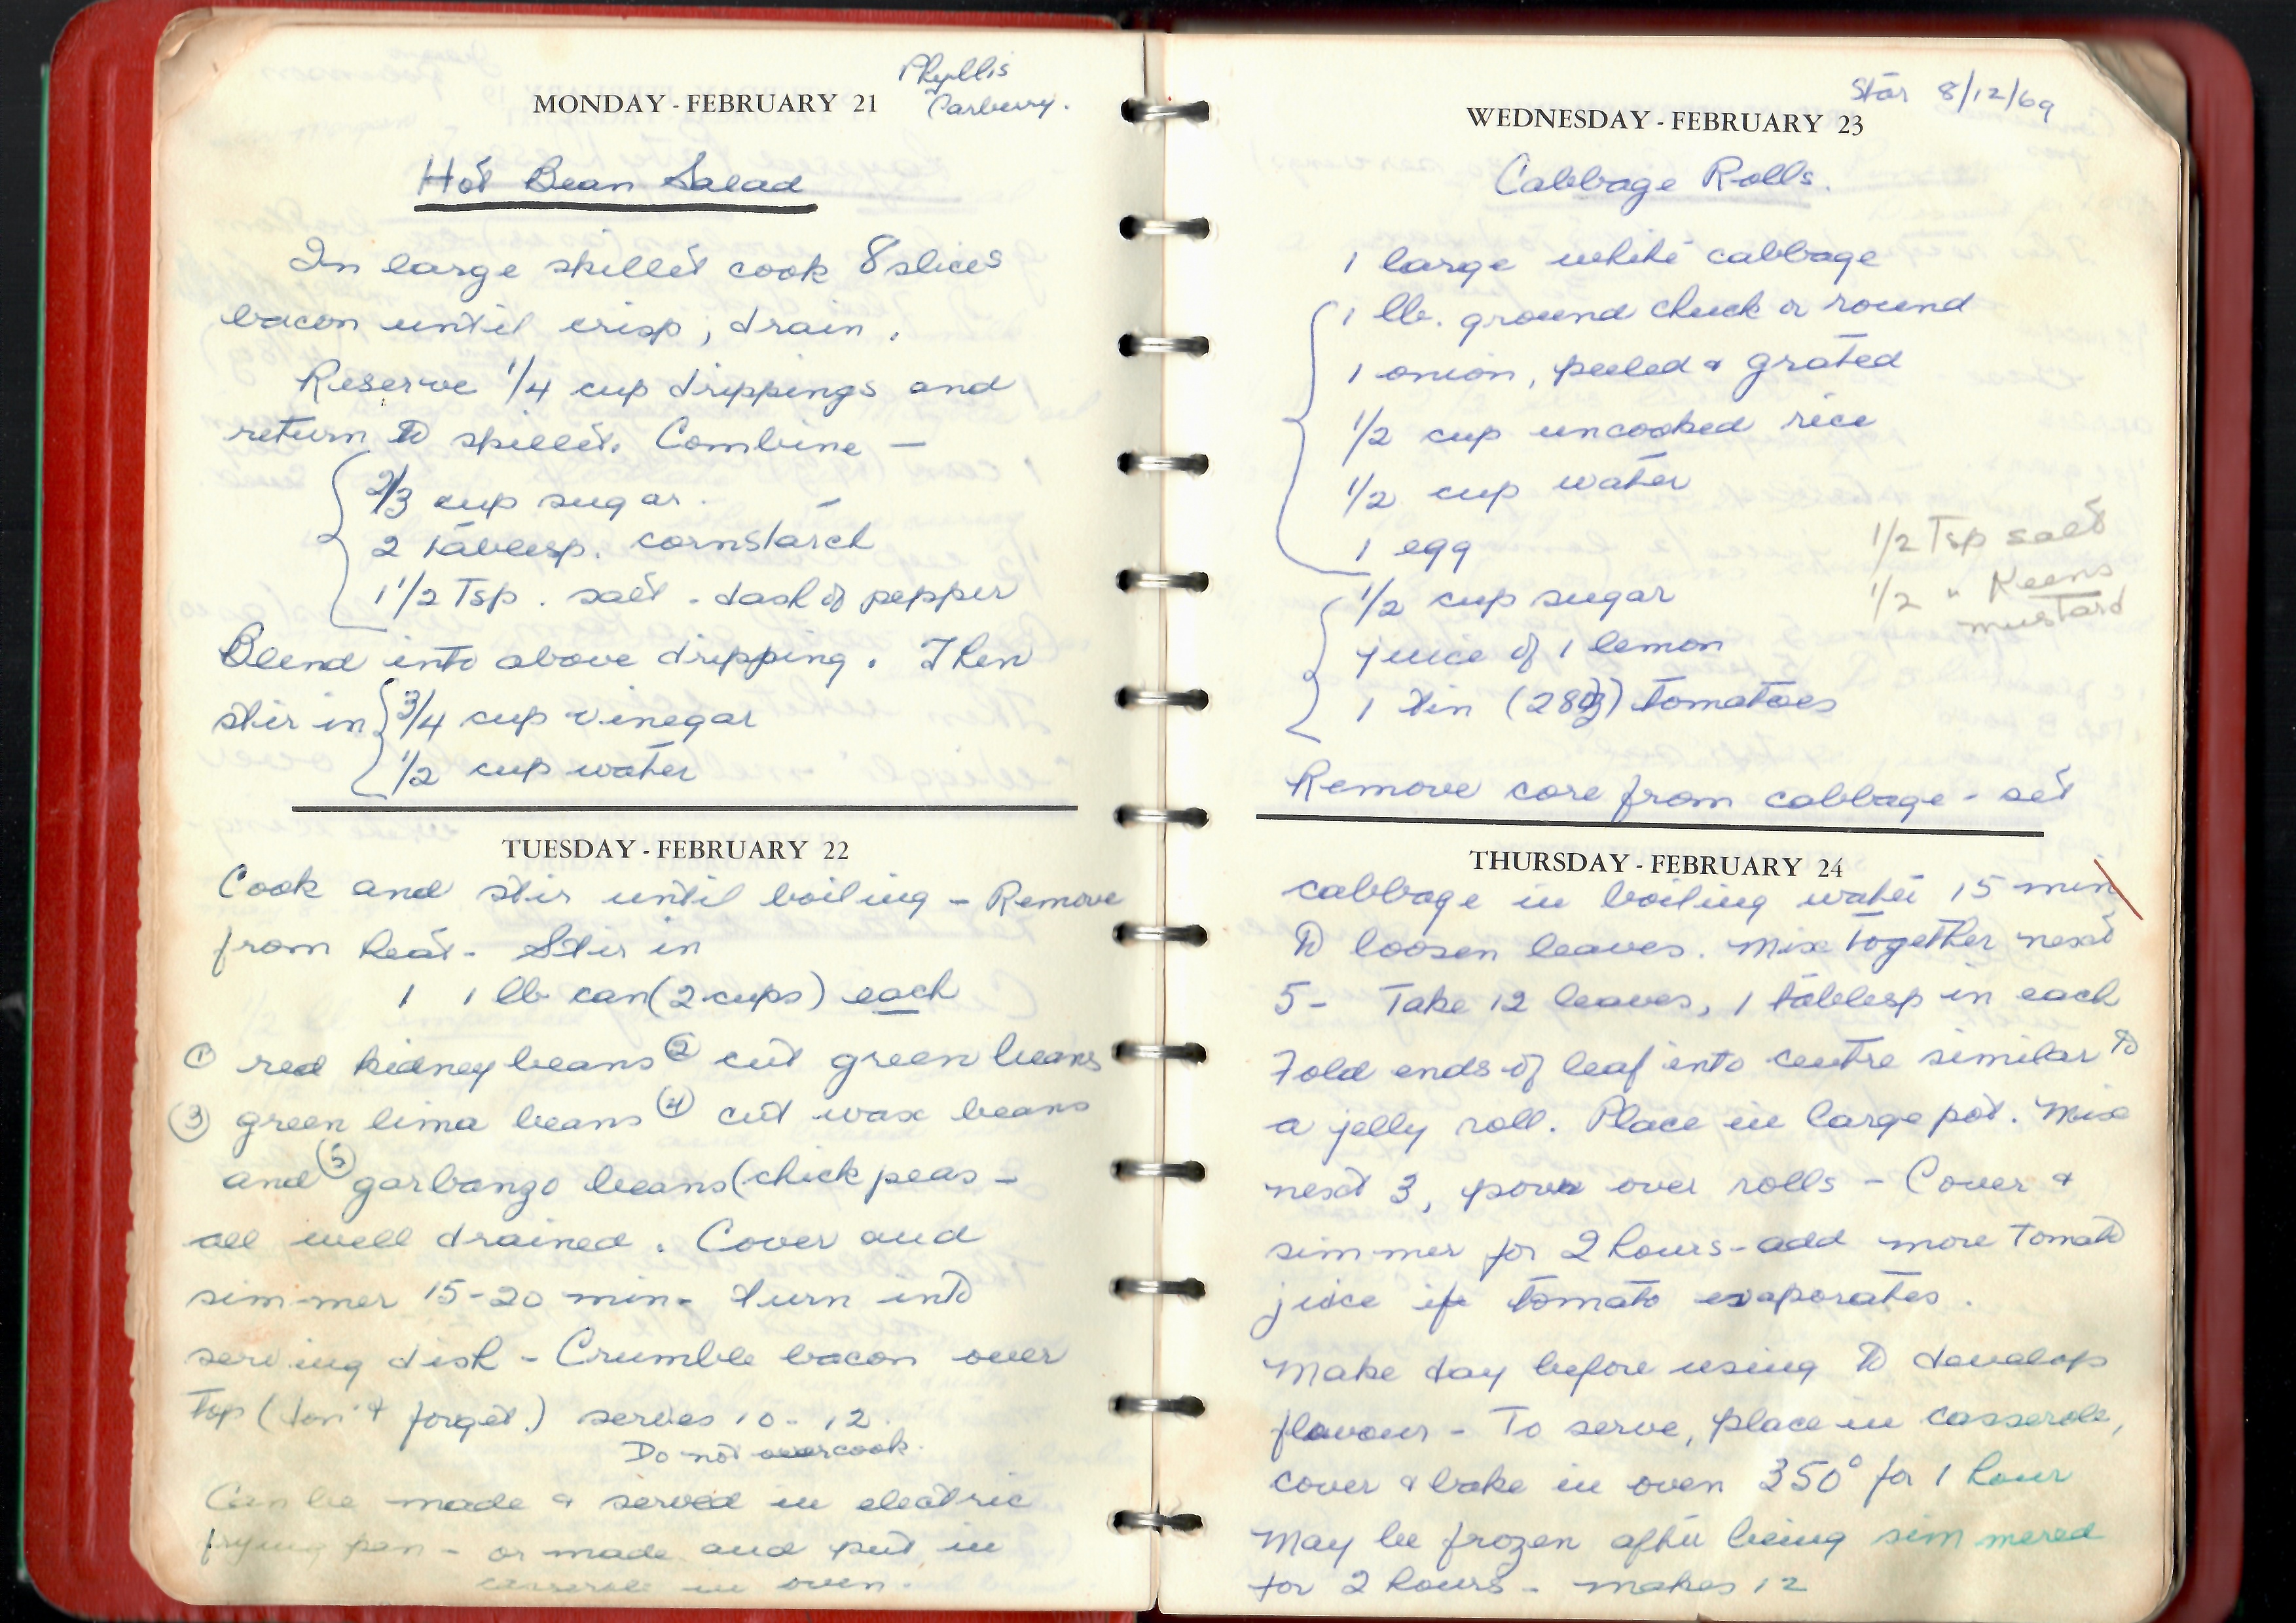 MONDAY - FEBRUARY 21
Phyllis
Carberry.
Hot Bean Salad
In large skillet cook 8 slices
bacon until crisp, drain.
Reserve 1/4 cup drippings and
return to skillet. Combine -
2/3 cup sugar.
2 tablesp. cornstarch
1 1/2 Tsp. salt - dash of pepper
Blend into above dripping. Then
stir in 3/4 cup vinegar
1/2 cup water
TUESDAY - FEBRUARY 22
Cook and stir until boiling - Remove
from heat - Stir in
1 1 lb can (2 cups) each
① red kidney beans ② cut green beans
③ green lima beans ④ cut wax beans
and ⑤ garbanzo beans (chick peas -
all well drained. Cover and
simmer 15-20 min - turn into
serving dish - Crumble bacon over
top (don't forget.) serves 10 - 12.
Do not overcook.
Can be made & served in electric
frying pan - or made and put in
casserole in oven.
WEDNESDAY - FEBRUARY 23
Star 8/12/69
Cabbage Rolls.
1 large white cabbage
1 lb. ground chuck or round
1 onion, peeled & grated
1/2 cup uncooked rice
1/2 cup water
1 egg
1/2 Tsp salt
1/2 " Keens
mustard
1/2 cup sugar
juice of 1 lemon
1 tin (28 oz) tomatoes
Remove core from cabbage - set
THURSDAY - FEBRUARY 24
cabbage in boiling water 15 min
to loosen leaves. Mix together next
5 - Take 12 leaves, 1 tablesp in each
Fold ends of leaf into centre similar to
a jelly roll. Place in large pot. Mix
next 3, pour over rolls - Cover &
simmer for 2 hours - add more tomato
juice if tomato evaporates.
Make day before using to develop
flavour - To serve, place in casserole,
cover & bake in oven 350° for 1 hour
May be frozen after being simmered
for 2 hours - makes 12